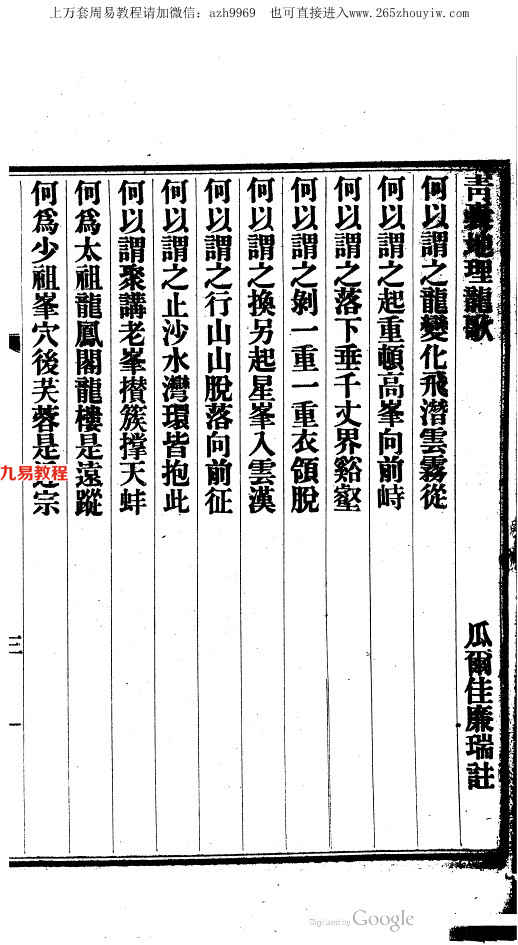 上万套周易教程请加微信：azh9969 也可直接进入www.265zhouyiw.com
青地理龍歌
瓜爾佳廉瑞註
何以謂之龍變化飛潛雲霧從
何以謂之起重頓高峯向前峙
何以謂之落下垂千丈界谿壑
何以謂之剝一重一重衣領脫
何以謂之換另起星峯入雲漢
何以謂之行山山脫落向前征
何以謂之止沙水灣環皆抱此
何以謂聚講老峯攅簇撑天蚌
何爲太祖龍鳳閣龍樓是遠蹤
何爲少祖峯穴後芙蓉是宗
九易教程
三
一
Digitized by Google